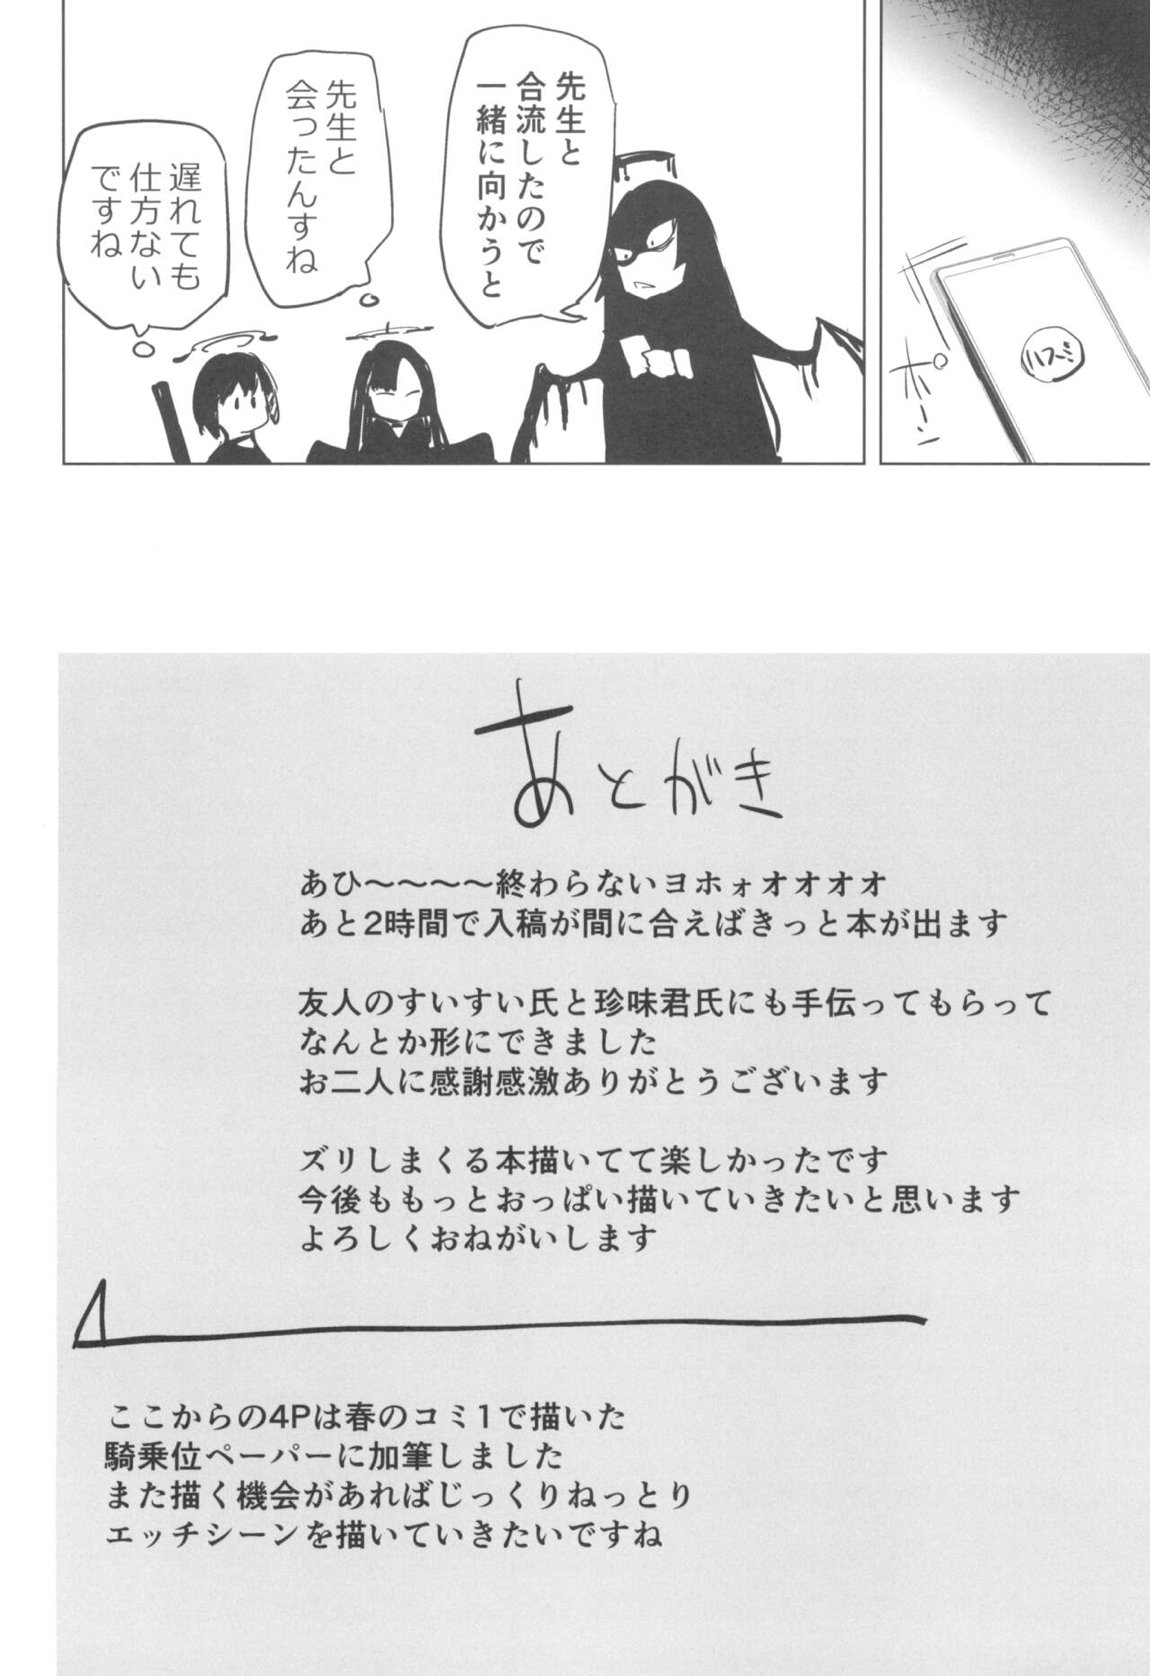 ポーン
ハスミ
先生と
合流したので
一緒に向かうと
先生と
会ったんすね
遅れても
仕方ない
ですね
あとがき
あひ～～～～終わらないヨホォオオオオ
あと2時間で入稿が間に合えばきっと本が出ます
友人のすいすい氏と珍味君氏にも手伝ってもらって
なんとか形にできました
お二人に感謝感激ありがとうございます
ズリしまくる本描いてて楽しかったです
今後ももっとおっぱい描いていきたいと思います
よろしくおねがいします
ここからの4Pは春のコミ1で描いた
騎乗位ペーパーに加筆しました
また描く機会があればじっくりねっとり
エッチシーンを描いていきたいですね